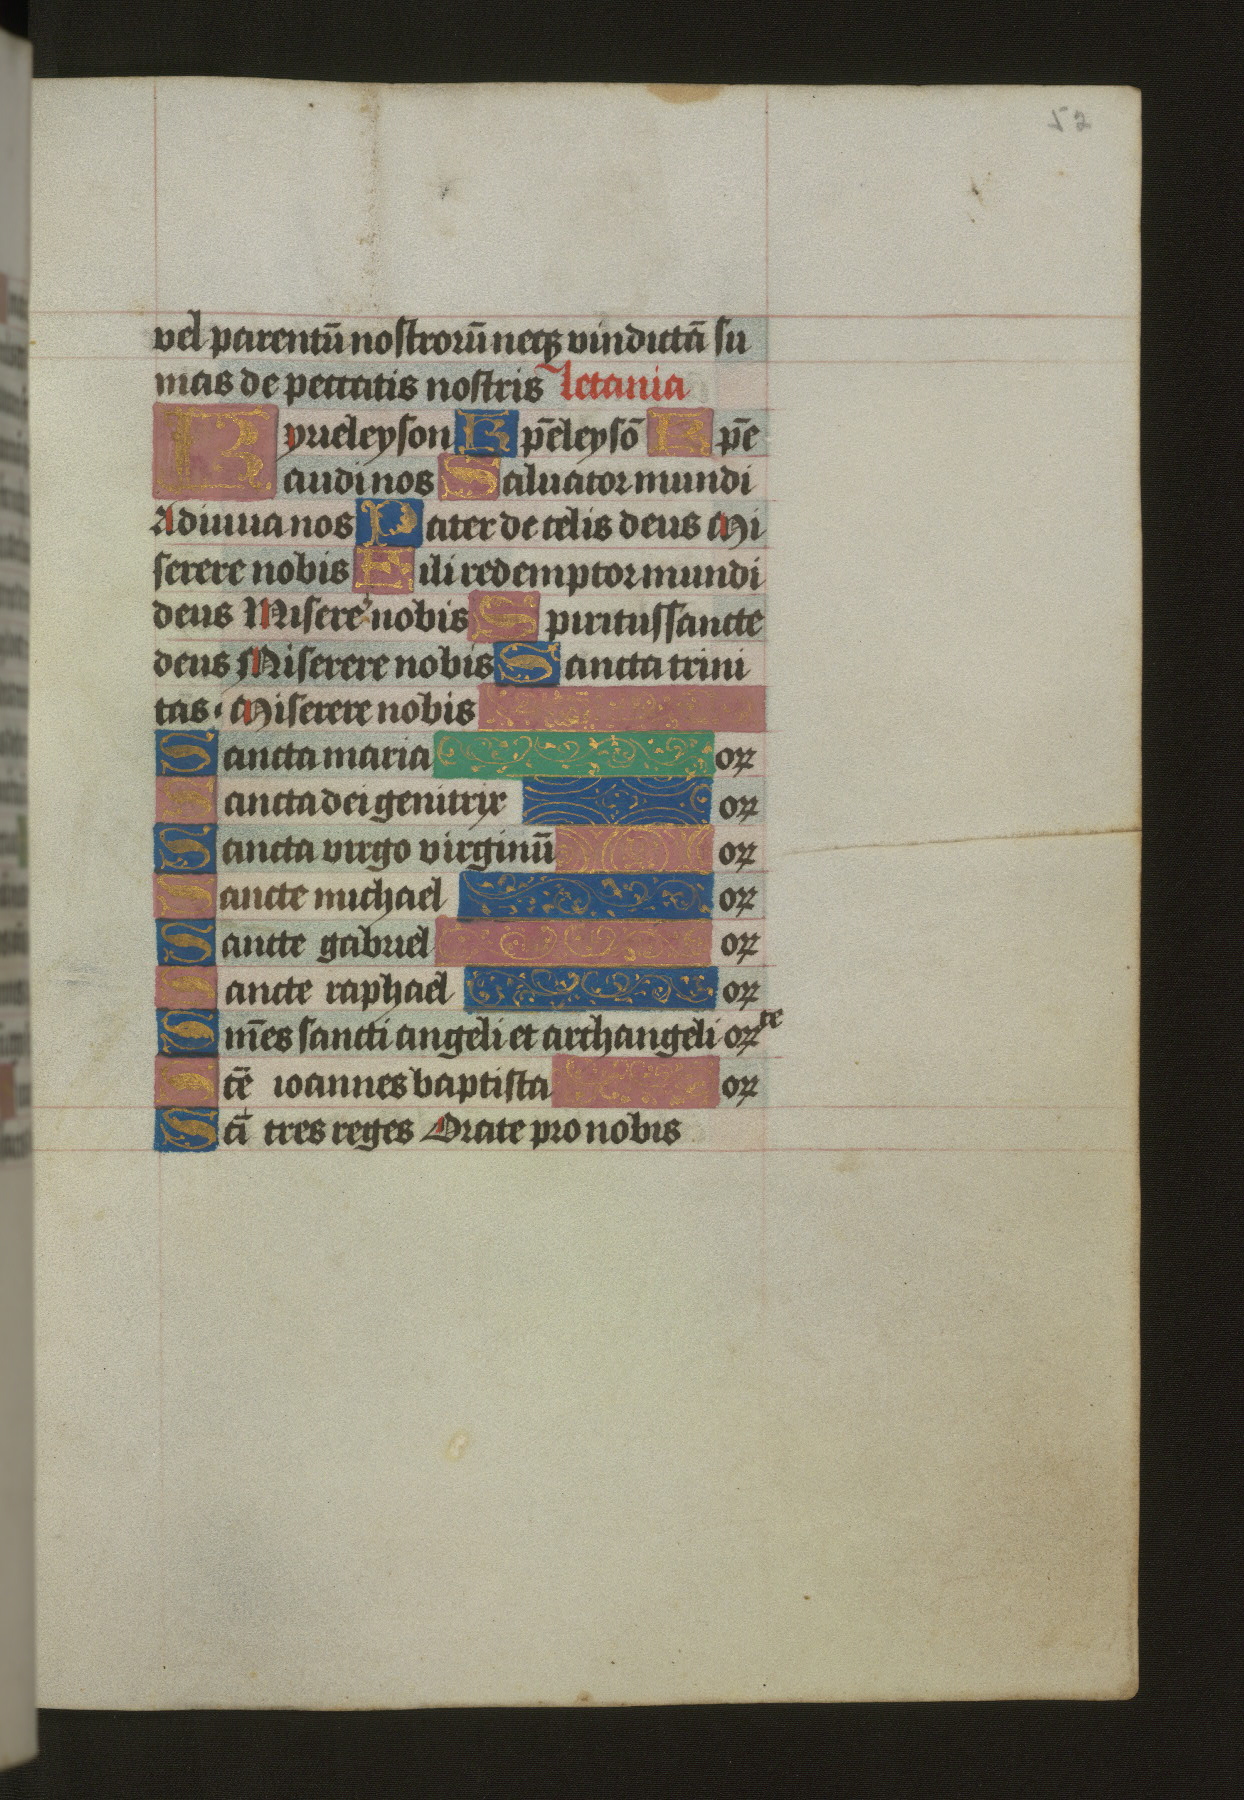 52
vel parentū nostrorū neqꝫ vindictā su
mas de peccatis nostris Letania
Kyrieleyson Xp̄eleysō Xp̄e
audi nos Saluator mundi
Adiuua nos Pater de celis deus Mi
serere nobis Fili redemptor mundi
deus Misere' nobis Spiritus sancte
deus Miserere nobis Sancta trini
tas Miserere nobis
Sancta maria or̄
Sancta dei genitrix or̄
Sancta virgo virginū or̄
Sancte michael or̄
Sancte gabriel or̄
Sancte raphael or̄
Om̄es sancti angeli et archangeli or̄te
Sc̄te ioannes baptista or̄
Sc̄ti tres reges Orate pro nobis